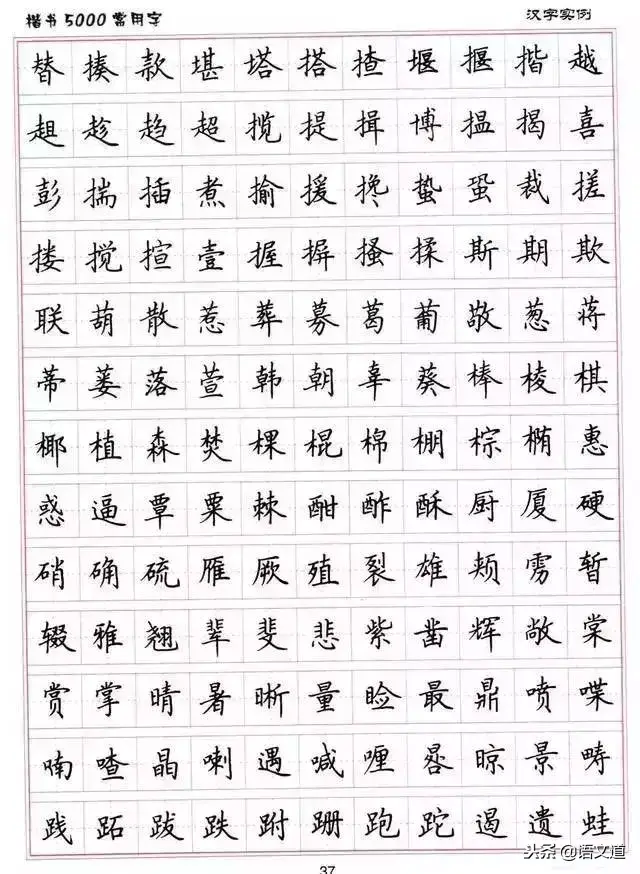 楷书5000常用字 汉字实例
替揍款堪塔搭揸堰揠揩越
趄趁趋超揽提揖博揾揭喜
彭揣插煮揄援搀蛰蛩裁搓
搂搅揎壹握摒搔揉斯期欺
联葫散惹葬募葛葡敬葱蒋
蒂蒌落萱韩朝辜葵棒棱棋
椰植森焚棵棍棉棚棕椭惠
惑逼覃粟棘酣酢酥厨厦硬
硝确硫雁厥殖裂雄颊雳暂
辍雅翘辈斐悲紫凿辉敞棠
赏掌晴暑晰量睑最鼎喷喋
喃喳晶喇遇喊喱晷晾景畴
践跖跋跌跗跚跑跎遏遗蛙
37
头条@语文道